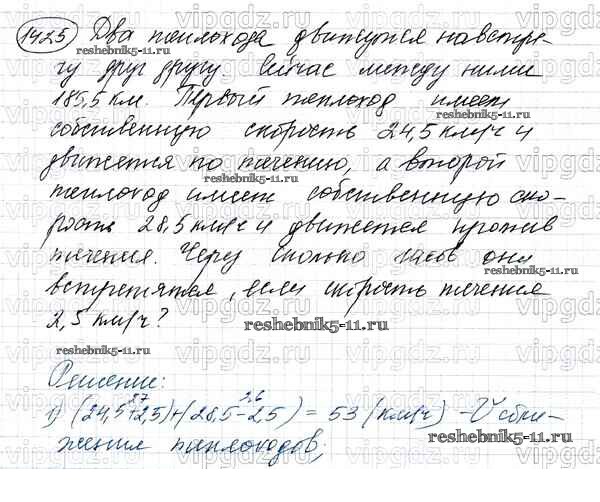 1425 Два теплохода движутся навстре-
чу друг другу. Сейчас между ними
185,5 км. Первый теплоход имеет
собственную скорость 24,5 км/ч и
движется по течению, а второй
теплоход имеет собственную ско-
рость 28,5 км/ч и движется против
течения. Через сколько часов они
встретятся, если скорость течения
2,5 км/ч?
reshebnik5-11.ru
Решение:
27 26
1) (24,5+2,5)+(28,5-2,5) = 53 (км/ч) - V сбли-
жения теплоходов;